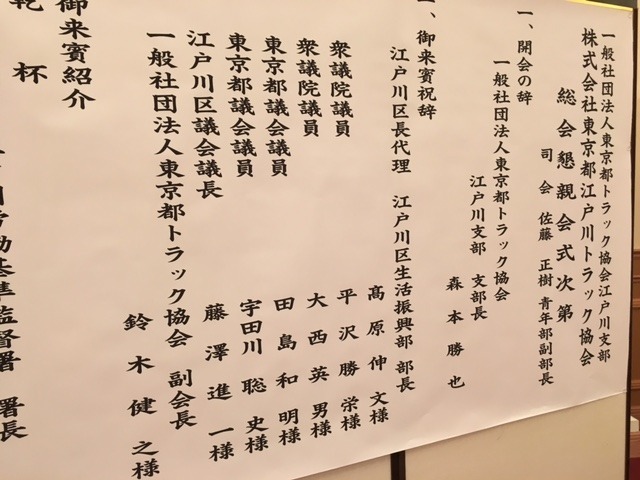 一般社団法人東京都トラック協会江戸川支部
株式会社東京都江戸川トラック協会
総会懇親会式次第
司会 佐藤 正樹 青年部副部長
一、開会の辞
一般社団法人東京都トラック協会
江戸川支部 支部長
森本勝也
一、御来賓祝辞
江戸川区長代理 江戸川区生活振興部 部長
髙原伸文様
衆議院議員 平沢勝栄様
衆議院議員 大西英男様
東京都議会議員 田島和明様
東京都議会議員 宇田川聡史様
江戸川区議会議長 藤澤進一様
一般社団法人東京都トラック協会 副会長
鈴木健之様
御来賓紹介
乾杯
労働基準監督署 署長